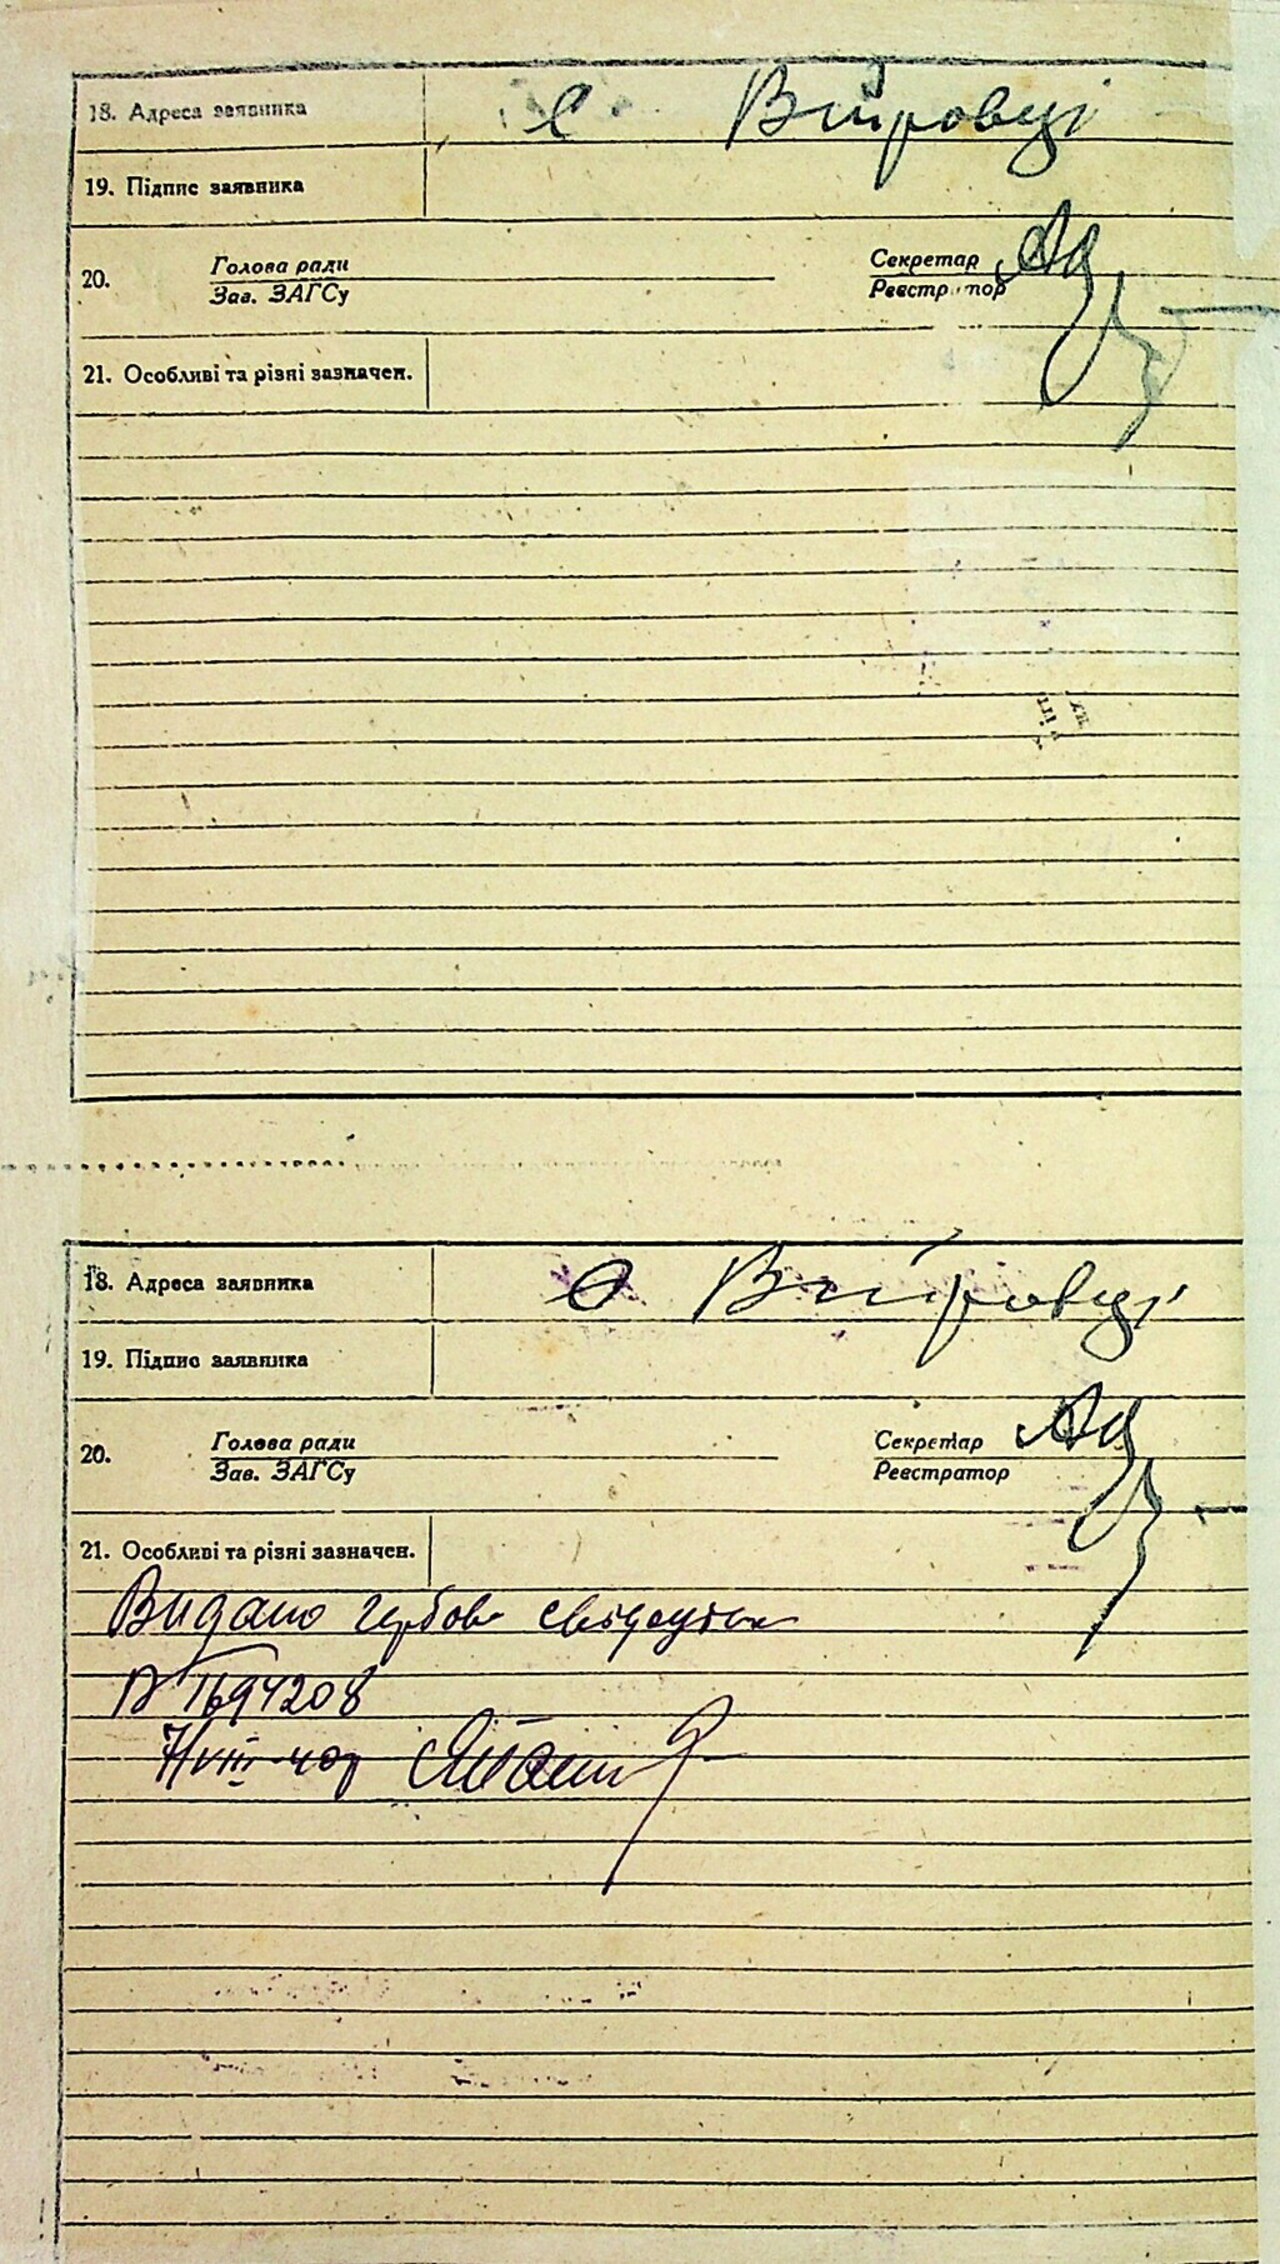 18. Адреса заявника с Вітровці
19. Підпис заявника
20. Голова ради Секретар
Зав. ЗАГСу Реєстратор
21. Особливі та різні зазначен.
18. Адреса заявника с Вітровці
19. Підпис заявника
20. Голова ради Секретар
Зав. ЗАГСу Реєстратор
21. Особливі та різні зазначен.
Видано гербове свідоцтво
7/VIII-40р